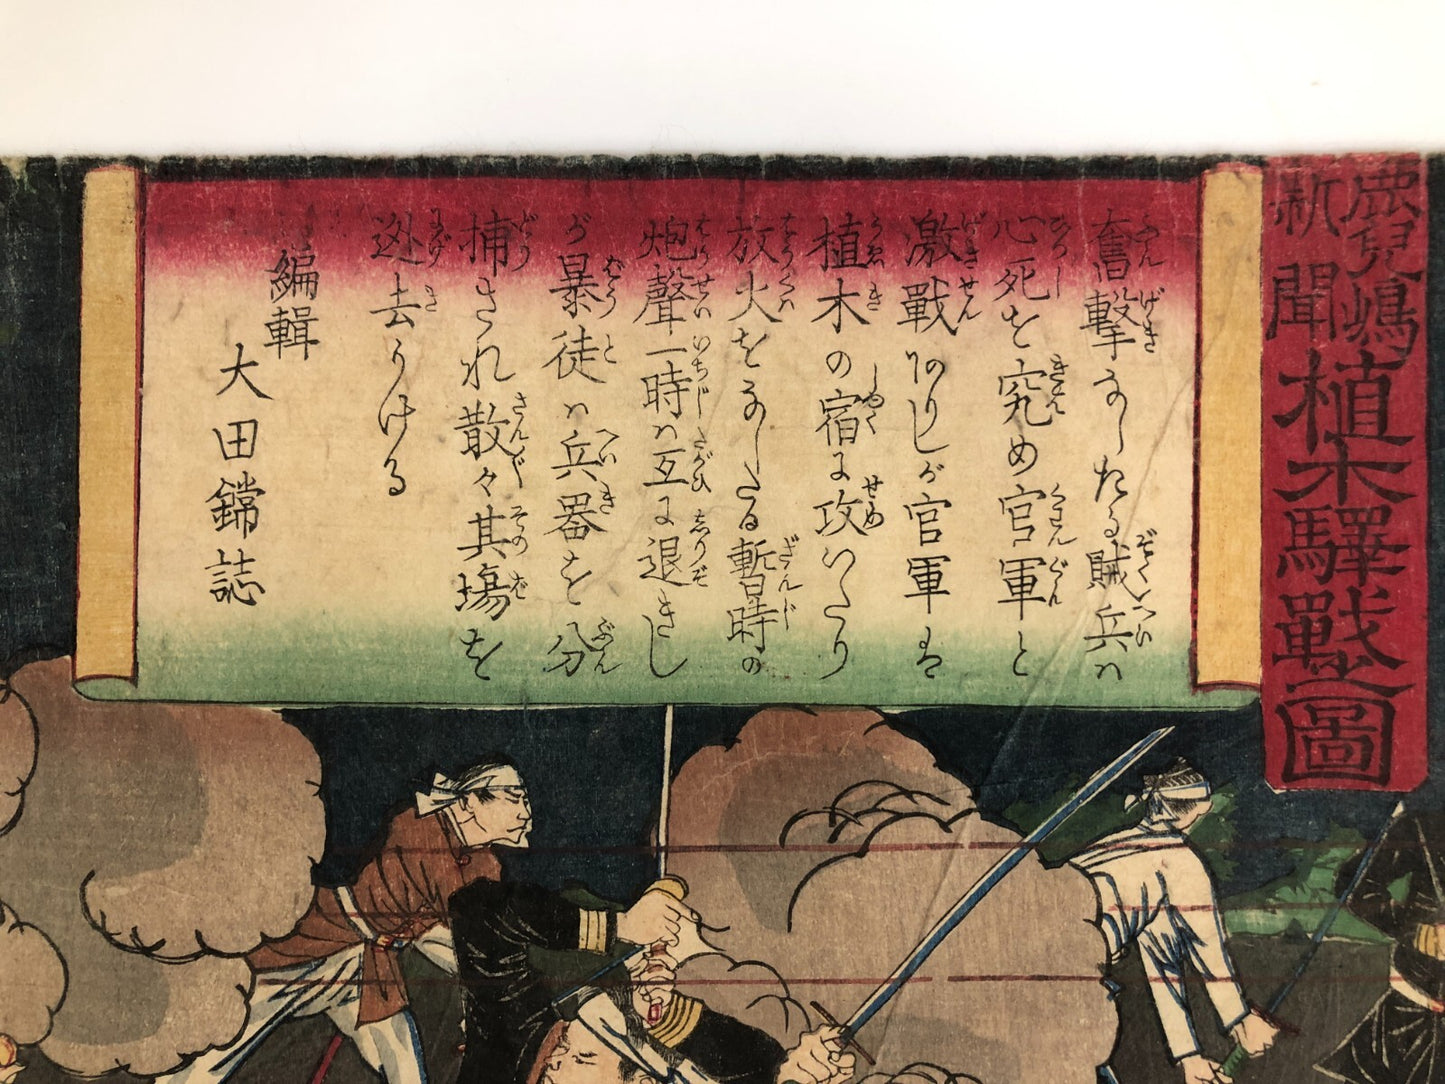 鹿児嶋
新聞
植木驛戰之圖
奮撃なしたる賊兵ハ
必死を究め官軍と
激戰ありしが官軍は
植木の宿に攻いたり
放火をなしたる暫時の
炮聲一時ハ互に退きし
が暴徒ハ兵器を分
捕され散々其塲を
迯去りける
編輯
大田鐺誌